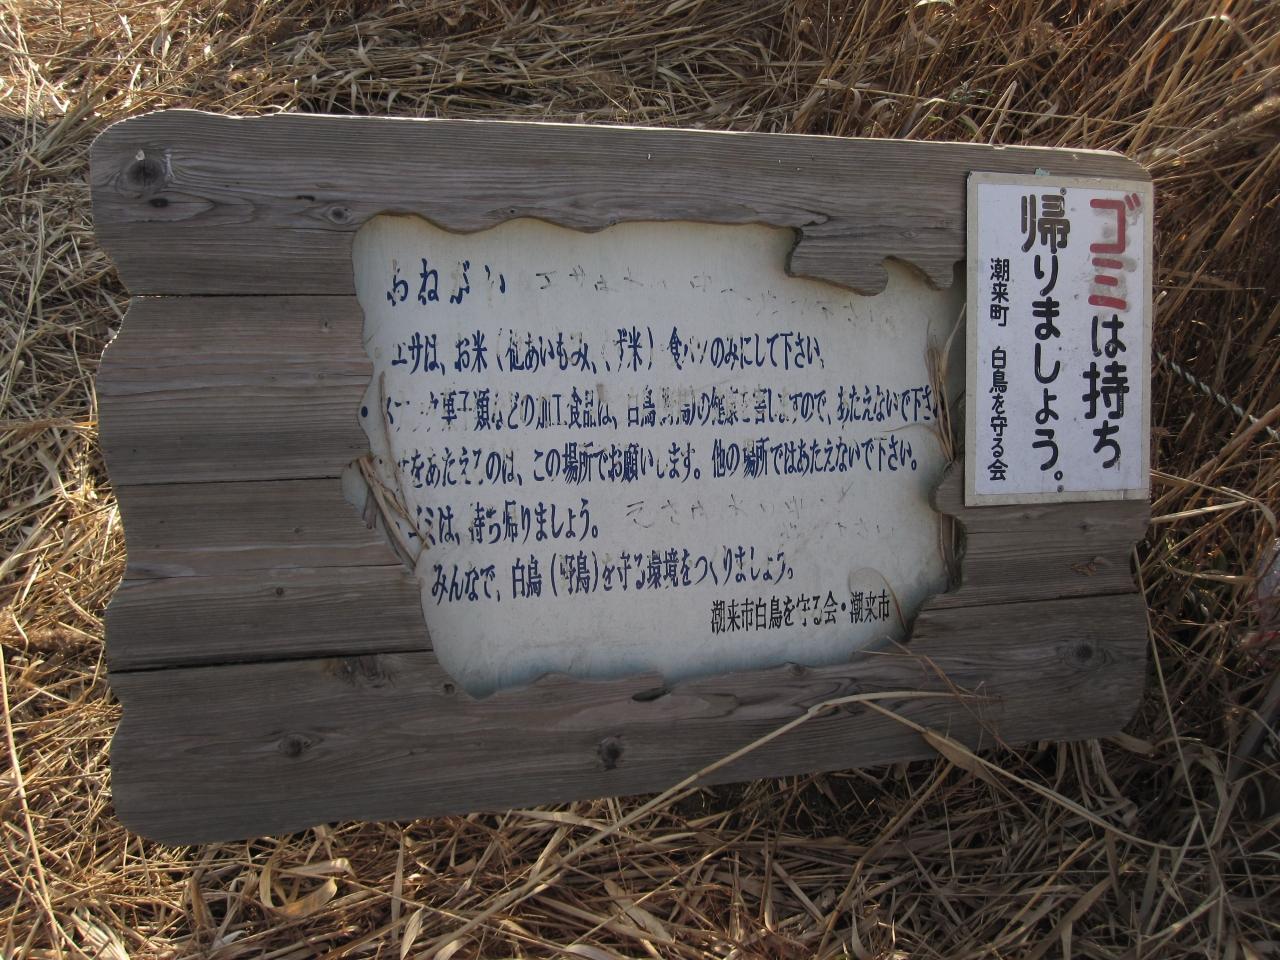 おねがい
エサは、お米（籾あいもみ、くず米）食パンのみにして下さい、
スナック菓子類などの加工食品は、白鳥（野鳥）の健康を害しますので、あたえないで下さい
をあたえるのは、この場所でお願いします。他の場所ではあたえないで下さい。
ゴミは、持ち帰りましょう。
みんなで、白鳥（野鳥）を守る環境をつくりましょう。
潮来市白鳥を守る会・潮来市
ゴミは持ち
帰りましょう。
潮来町 白鳥を守る会